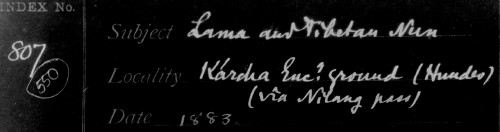 INDEX No.
807
550
Subject Lama and Tibetan Nun
Locality Kárcha Enc? ground (Hundes)
(viâ Nilang pass)
Date 1883.